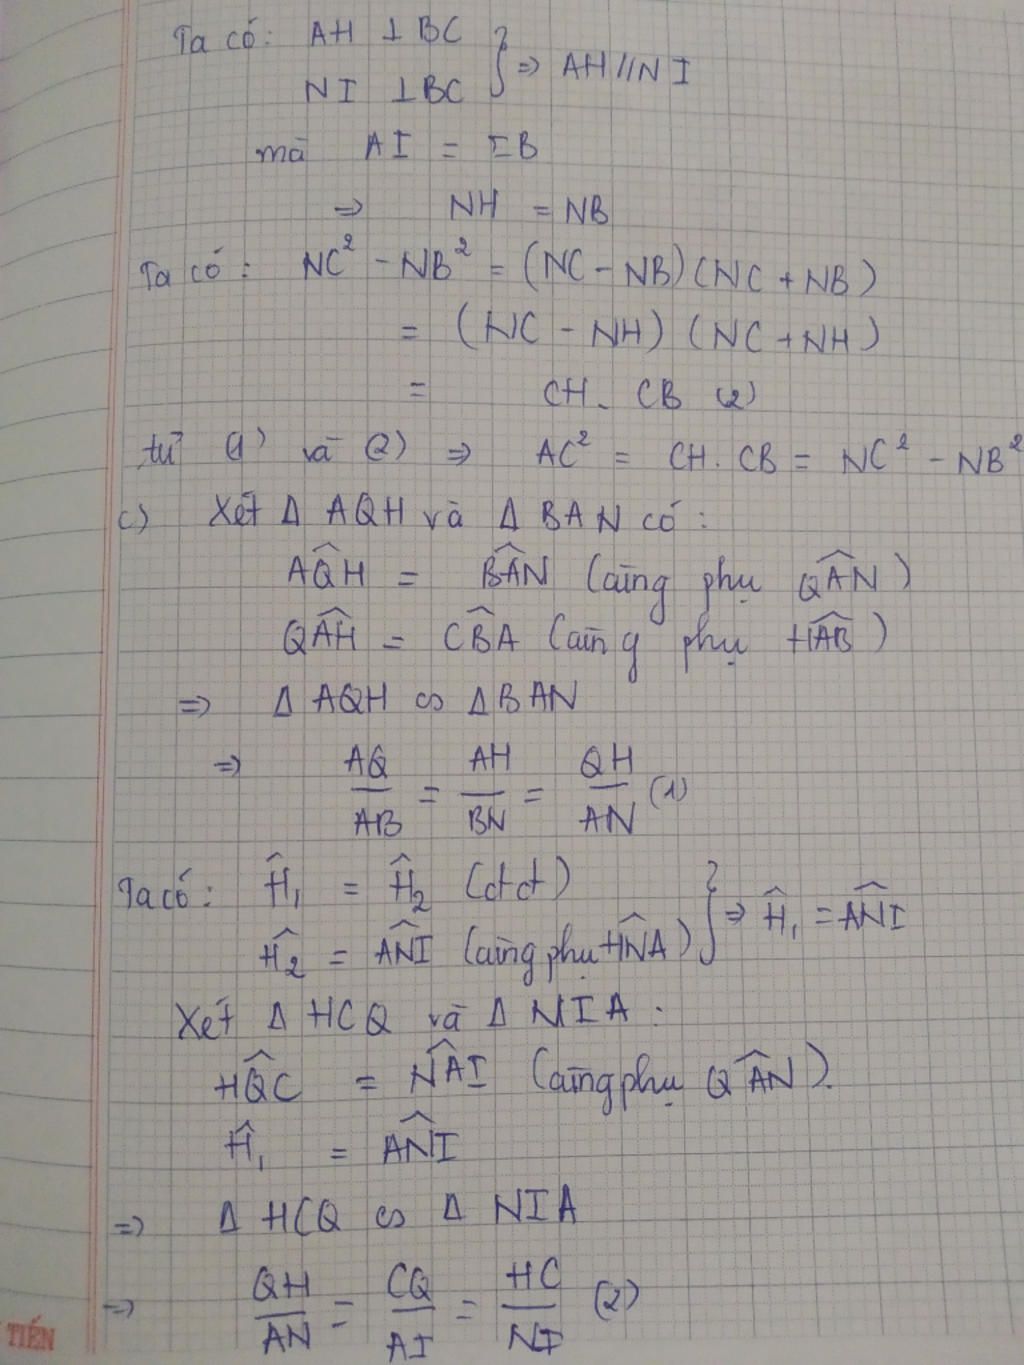 Ta có: AH ⊥ BC
NI ⊥ BC } ⇒ AH // NI
mà AI = IB
⇒ NH = NB
Ta có: NC² - NB² = (NC - NB)(NC + NB)
= (NC - NH)(NC + NH)
= CH. CB (2)
từ (1) và (2) ⇒ AC² = CH. CB = NC² - NB²
c) Xét Δ AQH và Δ BAN có:
AQ̂H = BÂN (cùng phụ QÂN)
QÂH = CB̂A (cùng phụ HÂB)
⇒ Δ AQH ∽ Δ BAN
⇒ AQ/AB = AH/BN = QH/AN (1)
Ta có: Ĥ₁ = Ĥ₂ (đđ)
Ĥ₂ = AN̂I (cùng phụ HN̂A) } ⇒ Ĥ₁ = AN̂I
Xét Δ HCQ và Δ NIA:
HQ̂C = NÂI (cùng phụ QÂN).
Ĥ₁ = AN̂I
⇒ Δ HCQ ∽ Δ NIA
⇒ QH/AN = CQ/AI = HC/NI (2)
TIẾN